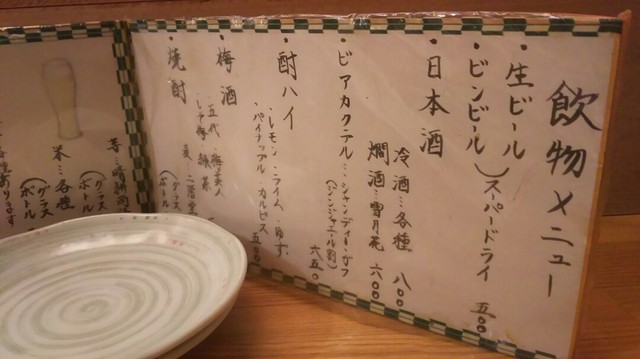 飲物メニュー
・生ビール
・ビンビール
スーパードライ 五〇〇
・日本酒
冷酒…各種 八〇〇
燗酒…雪月花 六〇〇
・ビアカクテル…シャンディーガフ
(ジンジャエール割)
六五〇
・酎ハイ
・レモン・ライム・ゆず
・パイナップル・カルピス
五〇〇
・梅酒
五代
・焼酎
麦…二階堂
(グラス
ボトル
芋…
(グラス
ボトル
米…各種
(グラス
ボトル
あります